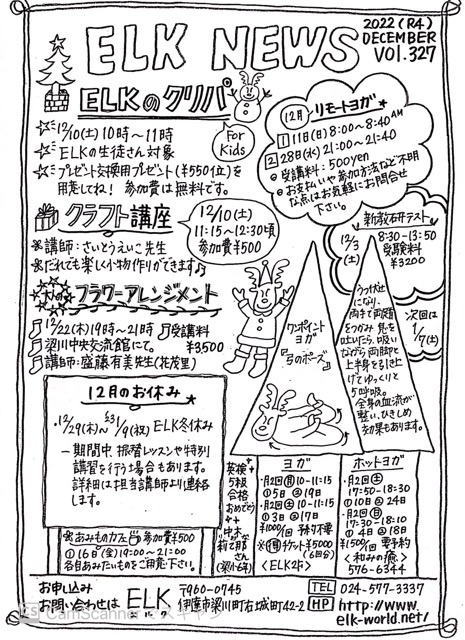 ELK NEWS
2022(R4)
DECEMBER
VOl.327
ELKのクリパ
For
Kids
☆12/10(土)10時〜11時
☆ELKの生徒さん対象
☆プレゼント交換用プレゼント(¥550位)を
用意してね! 参加費は無料です。
12月 リモートヨガ*
1 11日(日)8:00〜8:40AM
2 28日(水)21:00〜21:40
◎受講料:500yen
◎お支払いや参加方法など不明
な点はお気軽にお問合せ
下さい。
クラフト講座
12/10(土)
11:15〜12:30頃
参加費¥500
※講師:さいとうえいこ先生
※だれでも楽しく小物作りができます♪
新教研テスト
12/3
(土)
8:30-13:50
受験料
¥3200
次回は
1/7(土)
大人のフラワーアレンジメント
♫12/22(木)19時〜21時 ♫受講料
¥3500
♫梁川中央交流館にて。
♫講師:盛藤有美先生(花茂里)
ワンポイント
ヨガ
『弓のポーズ』
うつ伏せ
になり、
両手で両足首
をつかみ 息を
吐いたら、吸い
ながら両脚と
上半身を引き上
げてゆっくりと
5呼吸。
全身の血流が
整い、ひきしめ
効果もあります。
12月のお休み*
・12/29(木)〜'23 1/9(祝) ELK冬休み
― 期間中 振替レッスンや特別
講習を行う場合もあります。
詳細は担当講師より連絡
します。
※あみものカフェ 参加費¥500
①16日(金)19:00〜21:00
各自あみたいものをご用意下さい。
英検
5級
合格
おめでとう
ヨガ
・月2回(月)10-11:15
①5日 ②19日
・月2回(土)10-11:15
①3日 ②17日
¥1000/1回 予約不要
※(得)チケット¥5000
(6回分)
<ELK2F>
ホットヨガ
・月2回(土)
17:50-18:30
①10日 ②24日
・月2回(日)
17:30-18:10
①4日 ②18日
¥1500/1回 要予約
<和みの癒>
576-6344
お申し込み
お問い合わせは
ELK
エルク
〒960-0745
伊達市梁川町右城町42-2
TEL 024-577-3337
HP http://www.
elk-world.net/
CS CamScanner でスキャン